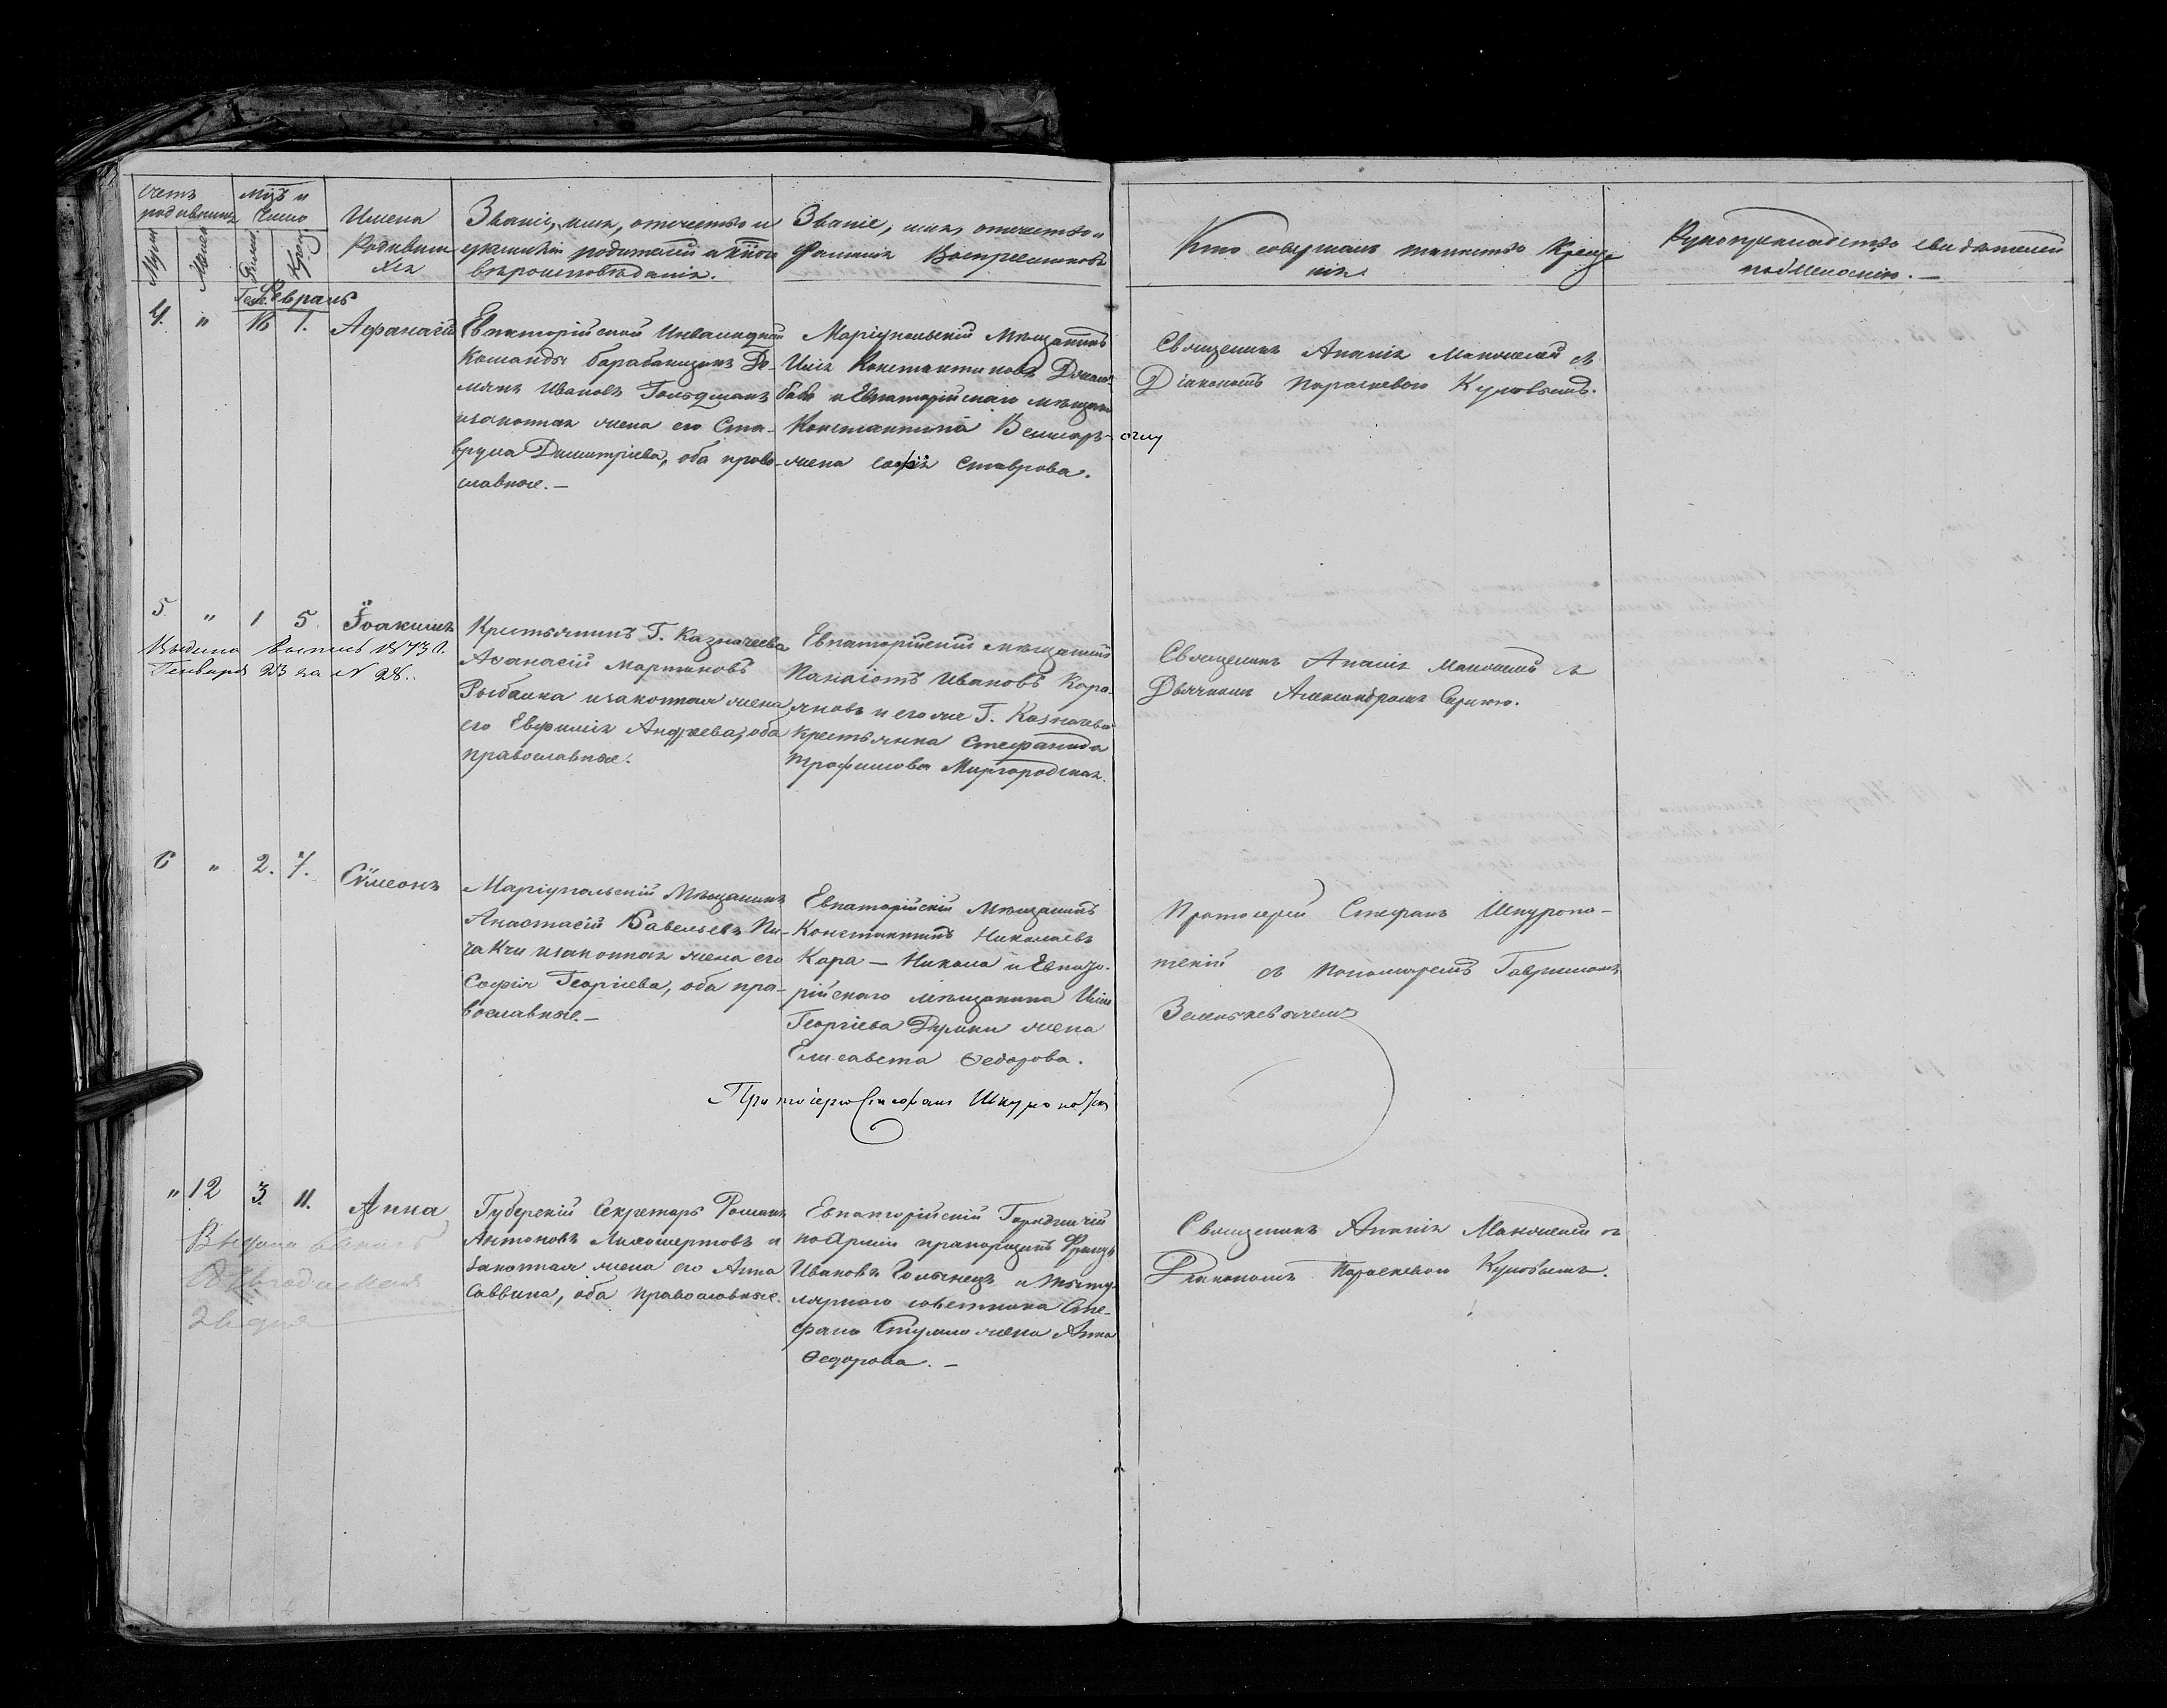 Счетъ
родившихся
Мцъ и
Число
Имена
Родивши
хся
Званіе, имя, отечество и
фамилія родителей и какого
вѣроисповѣданія.
Званіе, имя, отечество и
Фамилія Воспріемниковъ
Кто совершалъ таинство Креще
нія
Рукоприкладство свидѣтелей
по желанію. —
Февраль
4. " 16 1. Афанасій
Евпаторійской Инвалидной
Команды барабанщикъ Де-
мянъ Ивановъ Гольдманъ
и законная жена его Ста-
врула Димитріева, оба право-
славные. —
Маріупольскій Мѣщанинъ
Илія Константиновъ
и Евпаторійскаго мѣщан
Константина
жена Софія Ставрова.
Священникъ Ананія Маножскій съ
Діакономъ Параскевою Куловымъ.
5. " 1 5. Іоакимъ
Выдана выпись 1873 г.
Генваря 23 за № 28.
Крестьянинъ Г. Казначеева
Аѳанасій Мартиновъ
Рыбалка и законная жена
его Евфимія Андреева, оба
православные.
Евпаторійскій мѣщанинъ
Панаіотъ Ивановъ Кара-
яновъ и его же Г. Казначеева
крестьянка Стефанида
Трофимова Миргородская.
Священникъ Ананія Маножскій съ
Дьячкомъ Александромъ
6 " 2. 7. Сѵмеонъ
Маріупольскій Мѣщанинъ
Анастасій Савельевъ Пи-
чакчи и законная жена его
Софія Георгіева, оба пра-
вославные. —
Евпаторійскій Мѣщанинъ
Константинъ Николаевъ
Кара — Никола и Евпато-
рійскаго мѣщанина Иліи
Георгіева Думки жена
Елисавета Ѳедорова.
Протоіерей Стефанъ Шкуропа-
тскій съ Пономаремъ Гавріиломъ
Зеленкевичемъ
Протоіерей Стефанъ Шкуропатскій
" 12 3. 11. Анна
Выдана выпись
Губерскій Секретарь Романъ
Антоновъ Лихошерстовъ и
законная жена его Анна
Саввина, оба православные.
Евпаторійскій Городничій
по Арміи прапорщикъ Францъ
Ивановъ Голынецъ и титу-
лярнаго совѣтника Сте-
фана жена Анна
Ѳедорова. —
Священникъ Ананія Маножскій съ
Діакономъ Параскевою Куловымъ.